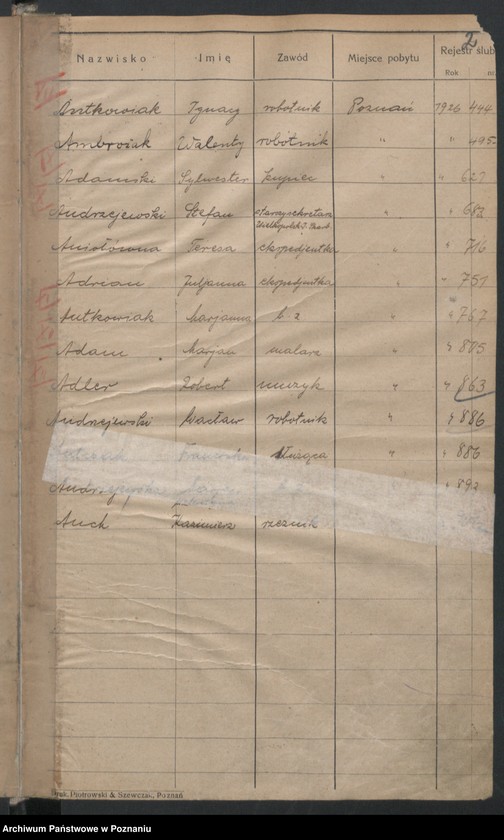 2
Nazwisko Imię Zawód Miejsce pobytu Rejestr ślub
Rok nr.
Antkowiak Ignacy robotnik Poznań 1926 444
Ambrożak Walenty robotnik " " 495
Adamski Sylwester kupiec " " 627
Andrzejewski Stefan " " 682
Aniołówna Teresa ekspedjentka " " 716
Adrian Juljanna ekspedjentka " " 751
Antkowiak Marjanna b z " " 767
Adam Marjan malarz " " 805
Adler Robert muzyk " " 863
Andrzejewski Wacław robotnik " " 886
służąca " " 886
" 892
Auch Kazimierz rzeźnik
Druk. Piotrowski & Szewczak, Poznań
Archiwum Państwowe w Poznaniu